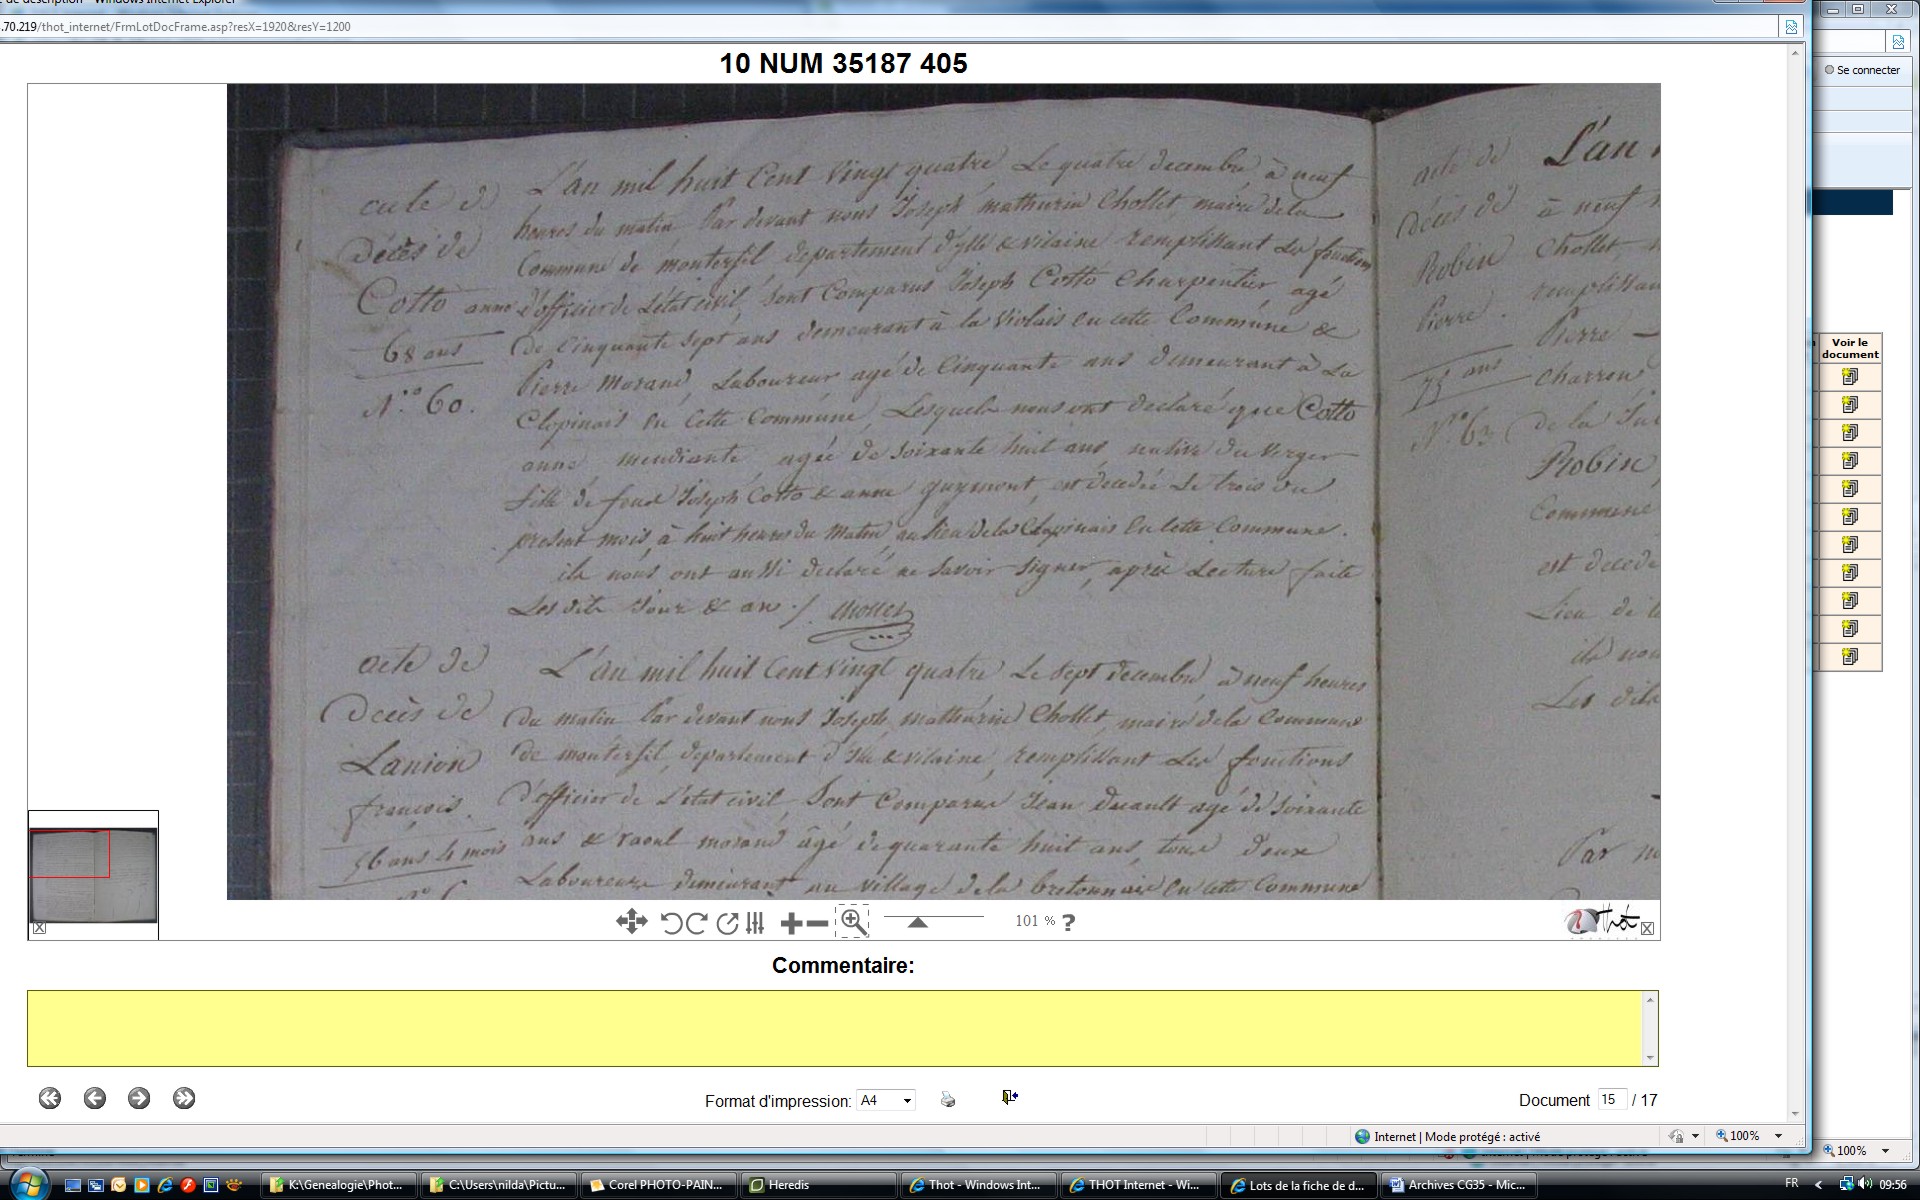 de description - Windows Internet Explorer
.70.219/thot_internet/FrmLotDocFrame.asp?resX=1920&resY=1200
Se connecter
10 NUM 35187 405
Voir le
document
acte de
Décès de
Cotto anne
68 ans
N.° 60.
L'an mil huit Cent Vingt quatre Le quatre decembre, à neuf
heures du matin Par devant nous Joseph mathurin Chollet, maire dela
Commune de monterfil, departement d'ylle & vilaine remplissant Les fonctions
d'officier de L'état civil, Sont Comparus Joseph Cotto Charpentier agé
De Cinquante Sept ans demeurant à la Violais en cette Commune &
Pierre Morand, Laboureur agé de Cinquante ans demeurant à La
Clopinais en Cette Commune, Lesquels nous ont declaré que Cotto
anne mendiante, agée de Soixante huit ans native du Verger
fille de feus Joseph Cotto & anne guymont, est decedée Le trois du
present mois, à huit heures du Matin au lieu dela Clopinais En cette Commune.
ils nous ont aussi declaré ne Savoir Signer, après Lecture faite
Les dits Jour & an ./. Chollet
acte de
Décès de
Lanion
françois.
56 ans 4 mois
L'an mil huit Cent Vingt quatre Le Sept decembre à neuf heures
Du matin Par devant nous Joseph mathurin Chollet, maire dela Commune
De monterfil, departement d'Ille & vilaine, remplissant Les fonctions
d'officier de L'état civil, Sont Comparus Jean Duault agé de Soixante
ans & raoul morand âgé de quarante huit ans, tous deux
Laboureurs demeurant au village dela bretonnais En cette Commune
acte de
Décès de
Robin
Pierre.
75 ans
L'an
à neuf
Chollet,
remplissan
Pierre
charron
de la
Robin,
Commune
est decede
Lieu de
ils nou
Les dits
Par
101 %
thot
Commentaire:
Format d'impression: A4
Document 15 / 17
Internet | Mode protégé : activé
100%
100%
K:\Genealogie\Phot...
C:\Users\nilda\Pictu...
Corel PHOTO-PAIN...
Heredis
Thot - Windows Int...
THOT Internet - Wi...
Lots de la fiche de d...
Archives CG35 - Mic...
FR
09:56